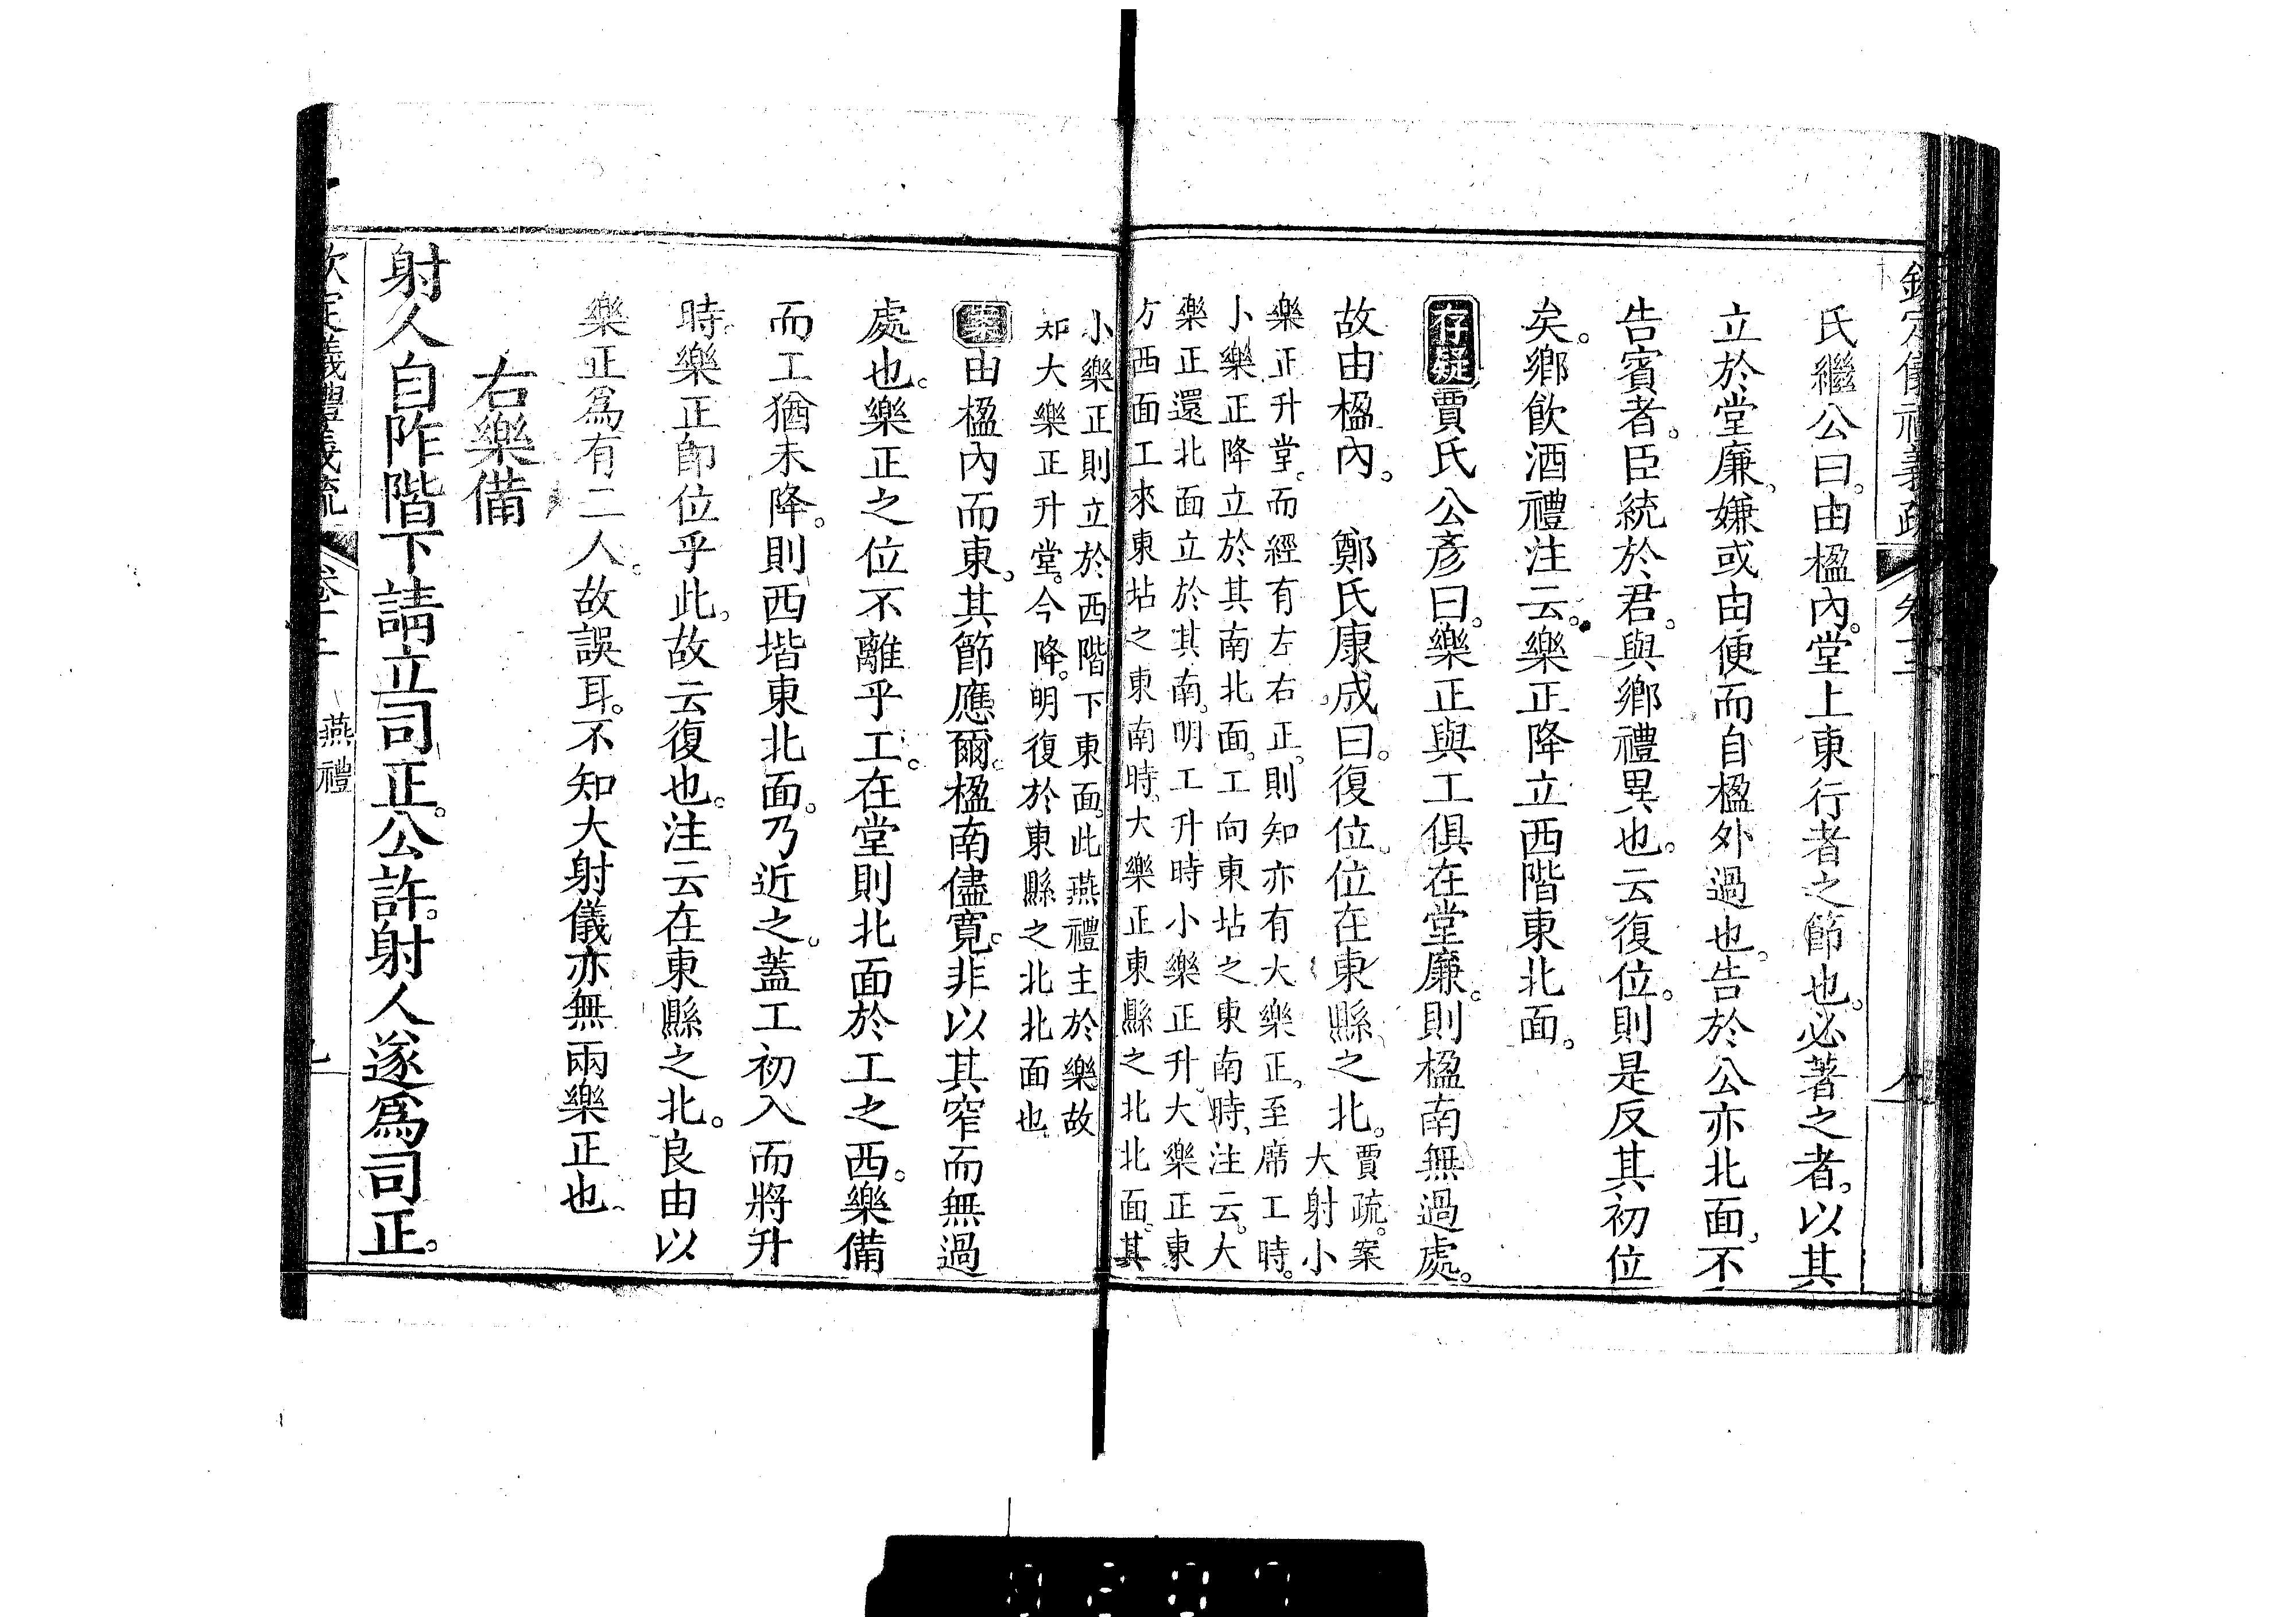 欽定儀禮義疏 卷十二
氏繼公曰。由楹內。堂上東行者之節也。必著之者。以其
立於堂廉。嫌或由便而自楹外過也。告於公亦北面。不
告賓者。臣統於君。與鄉禮異也。云復位。則是反其初位
矣。鄉飲酒禮注云。樂正降立西階東北面。
存疑賈氏公彥曰。樂正與工俱在堂廉。則楹南無過處。
故由楹內。 鄭氏康成曰。復位。位在東縣之北。賈疏。案
大射小
樂正升堂。而經有左右正。則知亦有大樂正。至席工時。
小樂正降立於其南北面。工向東坫之東南時。注云。大
樂正還北面立於其南。明工升時小樂正升。大樂正東
方西面工來東坫之東南時。大樂正東縣之北北面。其
小樂正則立於西階下東面。此燕禮主於樂。故
知大樂正升堂。今降。明復於東縣之北北面也
案由楹內而東。其節應爾。楹南儘寬。非以其窄而無過
處也。樂正之位不離乎工。在堂則北面於工之西。樂備
而工猶未降。則西堦東北面。乃近之。蓋工初入而將升
時。樂正卽位乎此。故云復也。注云在東縣之北。良由以
樂正爲有二人。故誤耳。不知大射儀亦無兩樂正也
右樂備
射人自阼階下請立司正。公許。射人遂爲司正。
欽定義禮義疏 卷十二 燕禮